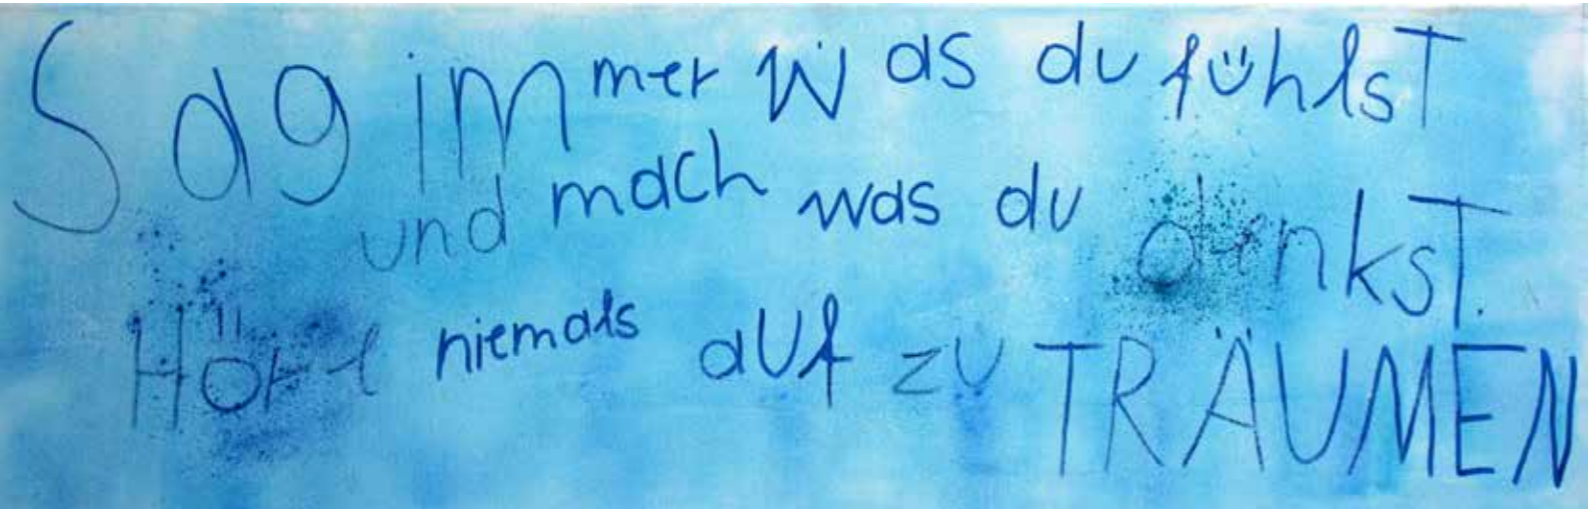 Sag immer was du fühlsT
und mach was du denksT.
Höre niemals auf zu TRÄUMEN